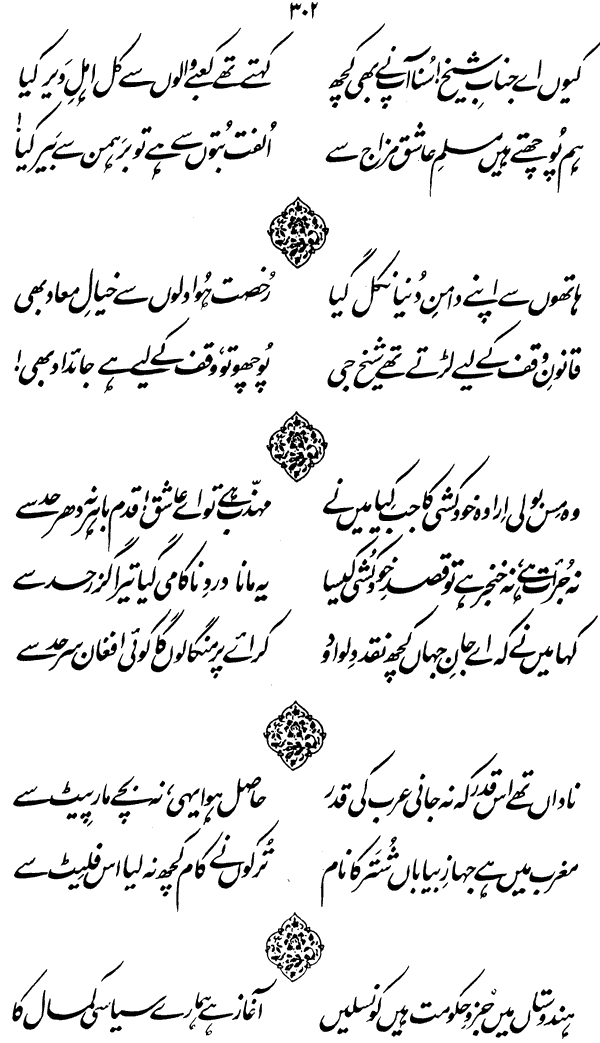 ۳۰۲
کیوں اے جنابِ شیخ! سُنا آپ نے بھی کچھ کہتے تھے کعبے والوں سے کل اہلِ دَیر کیا
ہم پُوچھتے ہیں مسلمِ عاشق مزاج سے اُلفت بُتوں سے ہے تو برَہمن سے بَیر کیا!
ہاتھوں سے اپنے دامنِ دُنیا نکل گیا رُخصت ہُوا دلوں سے خیالِ معاد بھی
قانونِ وقف کے لیے لڑتے تھے شیخ جی پُوچھو تو، وقف کے لیے ہے جائداد بھی!
وہ مِس بولی اِرادہ خودکشی کا جب کِیا میں نے مہذّب ہے تو اے عاشق! قدم باہر نہ دھر حد سے
نہ جُرأت ہے، نہ خنجر ہے تو قصدِ خودکُشی کیسا یہ مانا دردِ ناکامی گیا تیرا گزر حد سے
کہا میں نے کہ اے جانِ جہاں کچھ نقد دِلوا دو کرائے پر منگالوں گا کوئی افغان سرحد سے
ناداں تھے اس قدر کہ نہ جانی عرب کی قدر حاصل ہوا یہی، نہ بچے مار پِیٹ سے
مغرب میں ہے جہازِ بیاباں شُتَر کا نام تُرکوں نے کام کچھ نہ لیا اس فلِیٹ سے
ہندوستاں میں جُزوِ حکومت ہیں کونسلیں آغاز ہے ہمارے سیاسی کمال کا